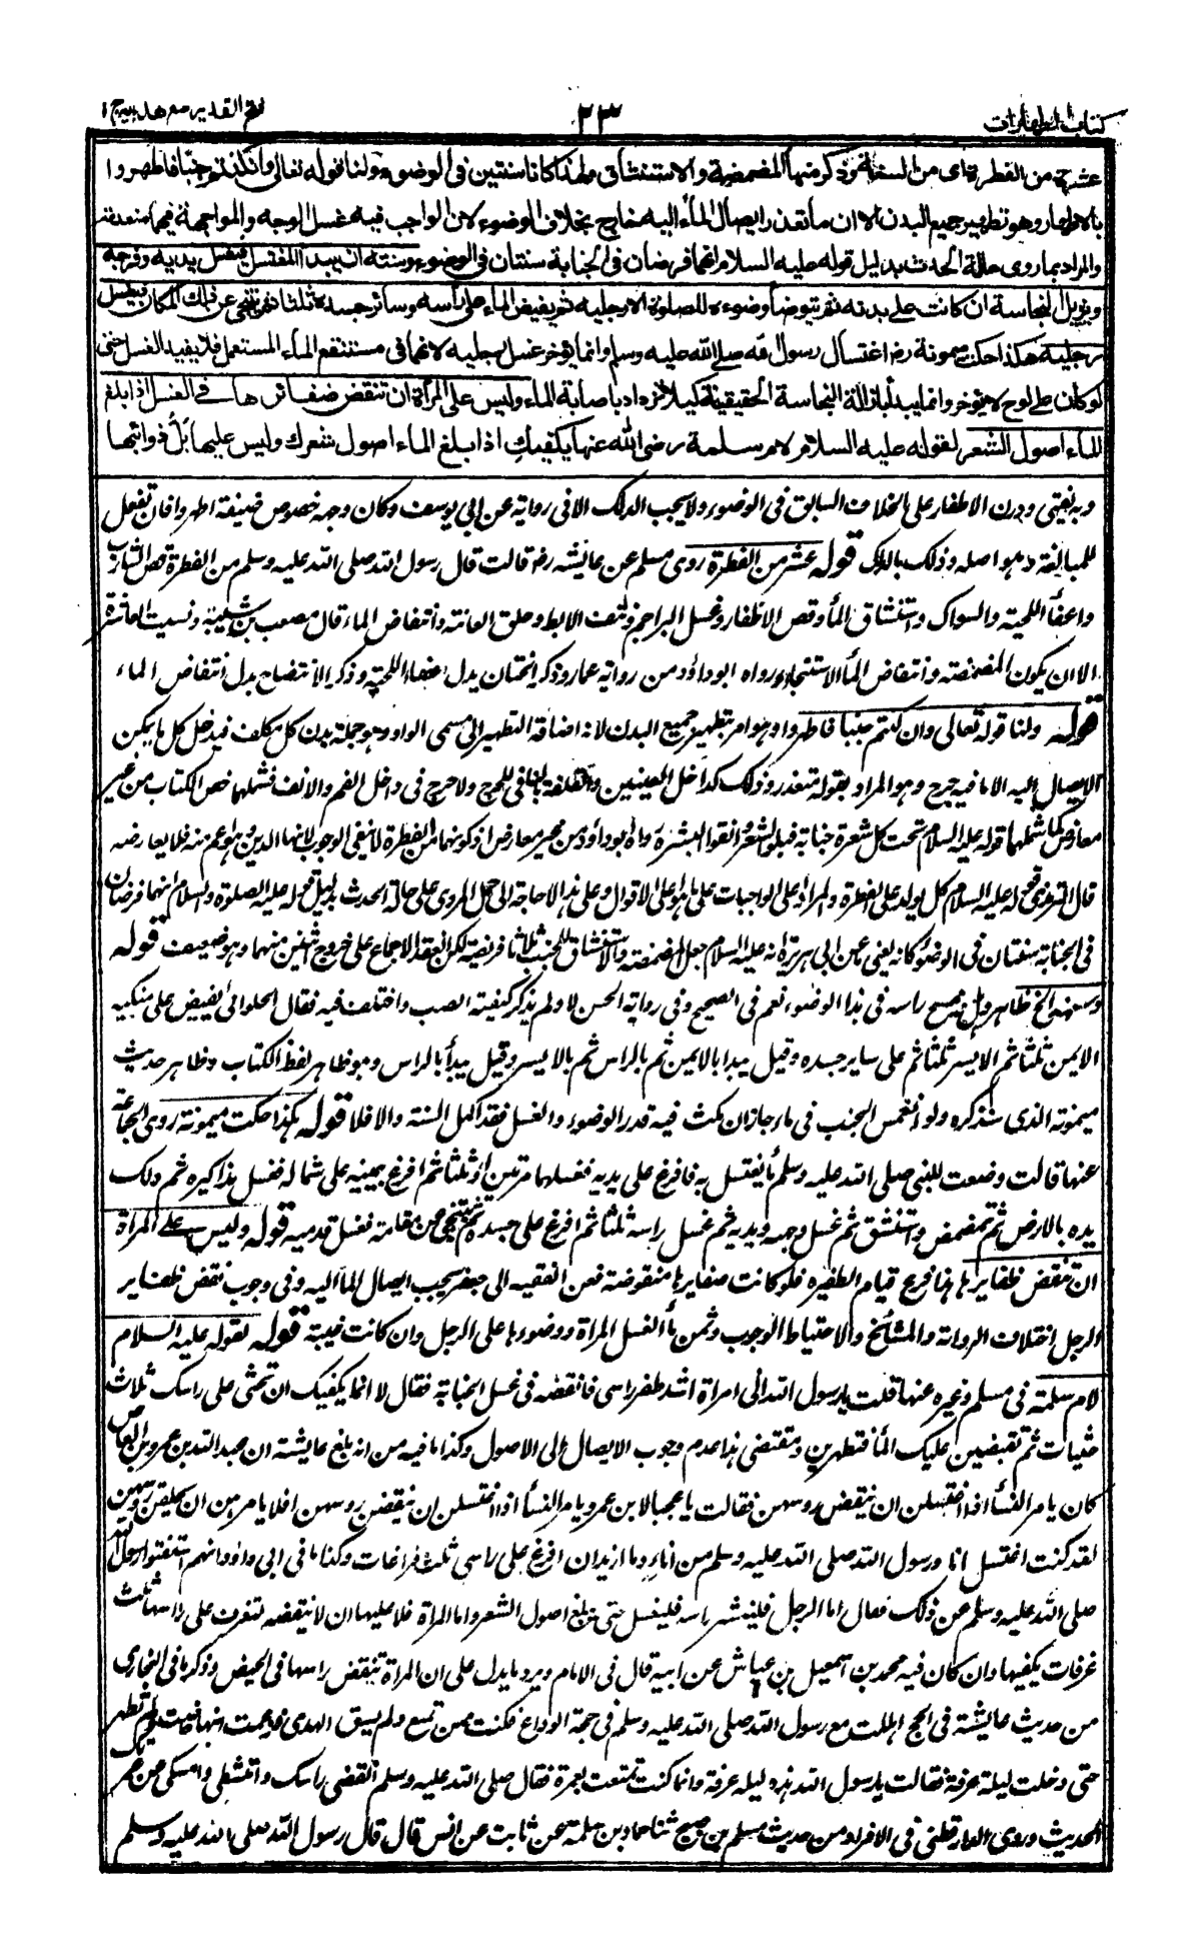 كتاب الطهارات
٢٣
فتح القدير مع هدايه ج ١
عشر من الفطرة اى من السنة وذكر منها المضمضة والاستنشاق ولهذا كانا سنتين فى الوضوء ولنا قوله تعالى وان كنتم جنبا فاطهروا
بالاطهار وهو تطهير جميع البدن الا ان ما تعذر ايصال الماء اليه خارج بخلاف الوضوء لان الواجب فيه غسل الوجه والمواجهة فيهما منعدمة
والمراد بما روى حالة الحدث بدليل قوله عليه السلام انهما فرضان فى الجنابة سنتان فى الوضوء وسنته ان يبدأ المغتسل فيغسل يديه وفرجه
ويزيل النجاسة ان كانت على بدنه ثم يتوضأ وضوءه للصلوة الا رجليه ثم يفيض الماء على رأسه وسائر جسده ثلثا ثم يتنحى عن ذلك المكان فيغسل
رجليه هكذا حكت ميمونة رض اغتسال رسول الله صلى الله عليه وسلم وانما يؤخر غسل رجليه لانهما فى مستنقع الماء المستعمل فلا يفيد الغسل حتى
لو كان على لوح لا يؤخر وانما يبدأ بازالة النجاسة الحقيقية كيلا تزداد باصابة الماء وليس على المرأة ان تنقض ضفائرها فى الغسل اذا بلغ
الماء اصول الشعر لقوله عليه السلام لام سلمة رضى الله عنها يكفيك اذا بلغ الماء اصول شعرك وليس عليها بل ذوائبها
وبه يفتى ودرن الاظفار على الخلاف السابق فى الوضوء ولا يجب الدلك الا فى رواية عن ابى يوسف وكان وجه خصوص صيغة اطهروا فان تفعل
للمبالغة وهو اصله وذلك بالدلك قوله عشر من الفطرة روى مسلم عن عائشة رض قالت قال رسول الله صلى الله عليه وسلم من الفطرة قص الشارب
واعفاء اللحية والسواك واستنشاق الماء وقص الاظفار وغسل البراجم ونتف الابط وحلق العانة وانتفاض الماء قال مصعب بن شيبة ونسيت العاشرة
الا ان يكون المضمضة وانتفاض الماء الاستنجاء ورواه ابو داؤد من رواية عمار وذكر الختان بدل اعفاء اللحية وذكر الانتضاح بدل انتفاض الماء
قوله ولنا قوله تعالى وان كنتم جنبا فاطهروا وهو امر بتطهير جميع البدن لانه اضافة التطهير الى مسمى الواو وهو جملة بدن كل مكلف فيدخل كل ما يمكن
الايصال اليه الا ما فيه حرج وهو المراد بقوله يتعذر وذلك كداخل العينين والقلفة لما فى للحرج ولا حرج فى داخل الفم والانف فشملهما نص الكتاب من غير
معارض كما شملهما قوله عليه السلام تحت كل شعرة جنابة فبلوا الشعر وانقوا البشرة رواه ابو داؤد من غير معارض اذ كونهما من الفطرة لا ينفى الوجوب لانها الدين وهو اعم منه فلا يعارضه
قال الترمذى قوله عليه السلام كل يولد على الفطرة والمراد على الواجبات على ما هو اعلى الاقوال وعلى هذا لا حاجة الى حمل المروى على حالة الحدث بدليل قوله عليه الصلوة والسلام انهما فرضان
فى الجنابة سنتان فى الوضوء كانه يعنى عن ابى هريرة انه عليه السلام جعل المضمضة والاستنشاق للجنب ثلاثا فريضة لكن انعقد الاجماع على خروج اثنين منهما وهو ضعيف قوله
وسنته الخ ظاهر وهل يمسح راسه فى هذا الوضوء نعم فى الصحيح وفى رواية الحسن لا ولم يذكر كيفية الصب واختلف فيه فقال الحلوانى يفيض على منكبه
الايمن ثلثا ثم الايسر ثلثا ثم على ساير جسده وقيل يبدا بالايمن ثم بالراس ثم بالايسر وقيل يبدأ بالراس وهو ظاهر لفظ الكتاب وظاهر حديث
ميمونة الذى سنذكره ولو انغمس الجنب فى ماء جار ان مكث فيه قدر الوضوء والغسل فقد اكمل السنة والا فلا قوله هكذا حكت ميمونة روى الجماعة
عنها قالت وضعت للنبى صلى الله عليه وسلم ما يغتسل به فافرغ على يديه فغسلهما مرتين او ثلثا ثم افرغ بيمينه على شماله فغسل مذاكيره ثم دلك
يده بالارض ثم تمضمض واستنشق ثم غسل وجهه ويديه ثم غسل راسه ثلثا ثم افرغ على جسده ثم تنحى عن مقامه فغسل قدميه قوله وليس على المرأة
ان تنقض ظفايرها هذا فرع قيام الظفيرة فلو كانت ضفايرها منقوضة فعن الفقيه ابى جعفر يجب ايصال الماء اليه وفى وجوب نقض ظفاير
الرجل اختلاف الرواية والمشائخ والاحتياط الوجوب وثمن ماء الغسل المرأة ووضوءها على الرجل وان كانت غنية قوله لقوله عليه السلام
لام سلمة فى مسلم وغيره عنها قلت يا رسول الله انى امرأة اشد ظفر راسى فانقضه فى غسل الجنابة فقال لا انما يكفيك ان تحثى على راسك ثلاث
حثيات ثم تفيضين عليك الماء فتطهرين ومقتضى هذا عدم وجوب الايصال الى الاصول وكذا ما فيه من انه بلغ عايشة ان عبد الله بن عمرو بن العاص
كان يامر النساء اذا اغتسلن ان ينقضن روسهن فقالت يا عجبا لابن عمرو يامر النساء اذا اغتسلن ان ينقضن روسهن افلا يامرهن ان يحلقن روسهن
لقد كنت اغتسل انا ورسول الله صلى الله عليه وسلم من اناء وما ازيد ان افرغ على راسى ثلث افراغات وكذا ما فى ابى داؤد انهم استفتوا رسول الله
صلى الله عليه وسلم عن ذلك فقال اما الرجل فلينشر راسه فليغسل حتى يبلغ اصول الشعر واما المرأة فلا عليها ان لا تنقضه لتغرف على راسها ثلث
غرفات يكفيها وان كان فيه محمد بن اسمعيل بن عياش عن ابيه قال فى الامام ويرد ما يدل على ان المرأة تنقض راسها فى الحيض وذكر ما فى البخارى
من حديث عايشة فى الحج اهللت مع رسول الله صلى الله عليه وسلم فى حجة الوداع فكنت ممن تمتع ولم يسق الهدى فزعمت انها حاضت ولم تطهر
حتى دخلت ليلة عرفة فقالت يا رسول الله هذه ليلة عرفة وانما كنت تمتعت بعمرة فقال صلى الله عليه وسلم انقضى راسك وامتشطى وامسكى عن عمرتك
الحديث وروى الدارقطنى فى الافراد من حديث مسلم بن صبيح ثنا حماد بن سلمة عن ثابت عن انس قال قال رسول الله صلى الله عليه وسلم